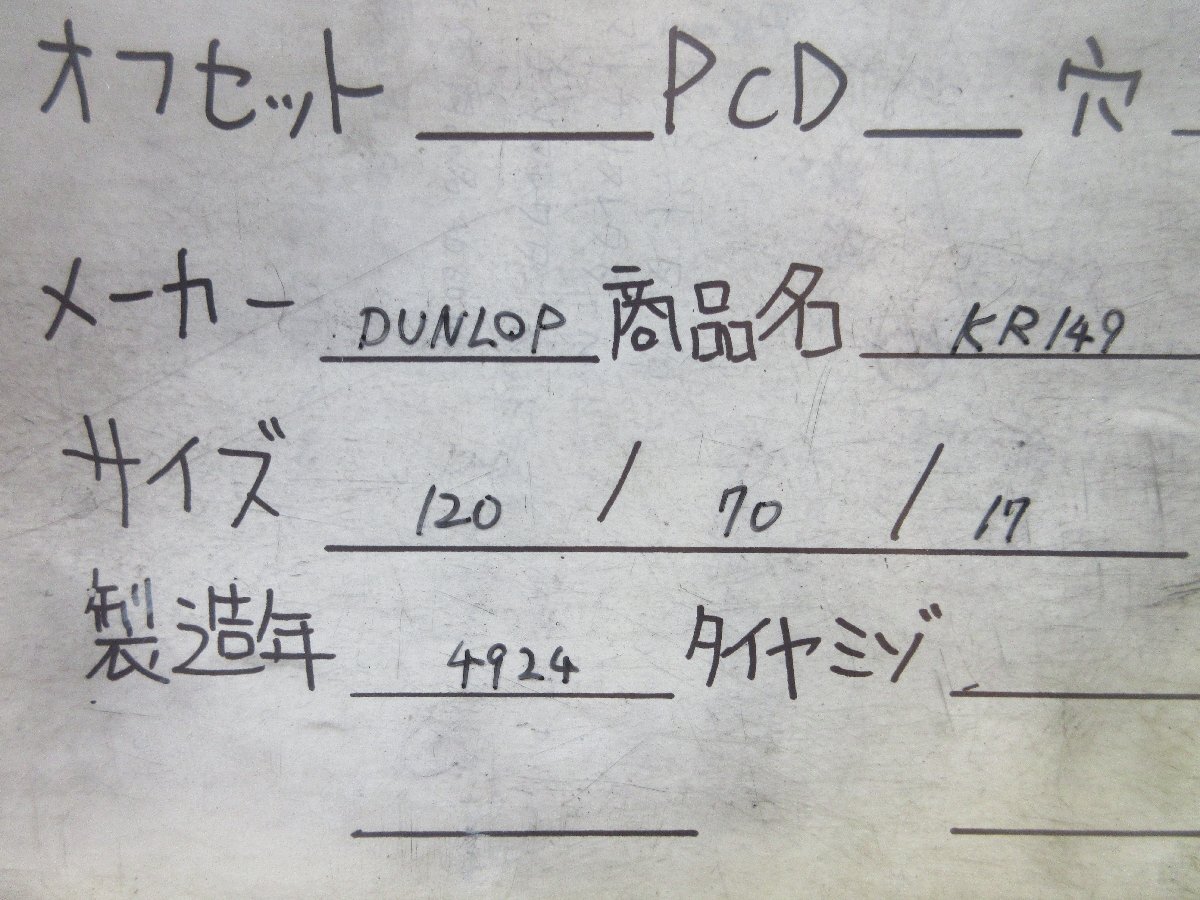 オフセット PCD 穴
メーカー DUNLOP 商品名 KR149
サイズ 120 / 70 / 17
製造年 4924 タイヤミゾ